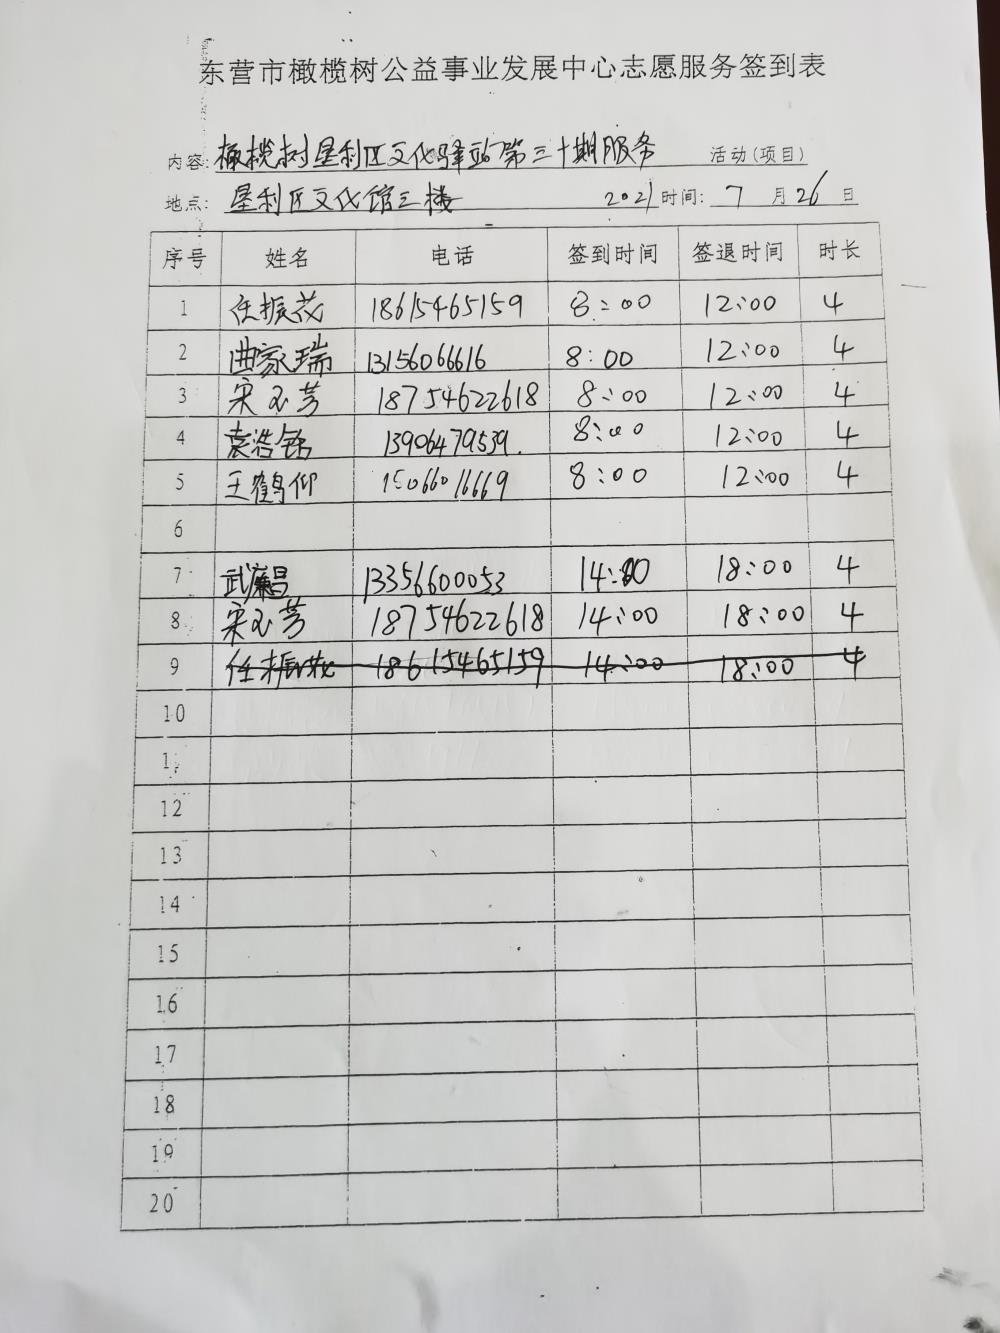 东营市橄榄树公益事业发展中心志愿服务签到表
内容: 橄榄树垦利区文化驿站第三十期服务 活动(项目)
地点: 垦利区文化馆三楼 2021 时间: 7 月 26 日
序号 姓名 电话 签到时间 签退时间 时长
1 任振花 18615465159 8:00 12:00 4
2 曲家瑞 13156066616 8:00 12:00 4
3 宋玉芳 18754622618 8:00 12:00 4
4 袁浩铭 13906479539. 8:00 12:00 4
5 王鹤仰 15066016669 8:00 12:00 4
6
7 武廉昌 13356600053 14:00 18:00 4
8 宋玉芳 18754622618 14:00 18:00 4
9 任振花 18615465159 14:00 18:00 4
10
11
12
13
14
15
16
17
18
19
20